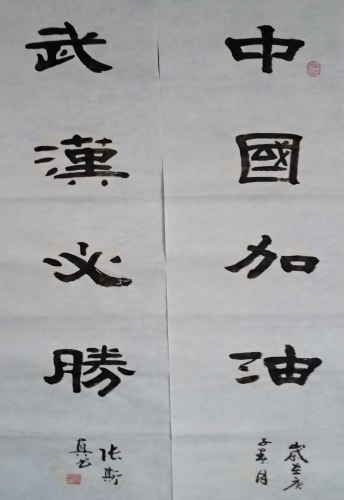 中國加油
歲在庚
子春月
武漢必勝
張斯
真書